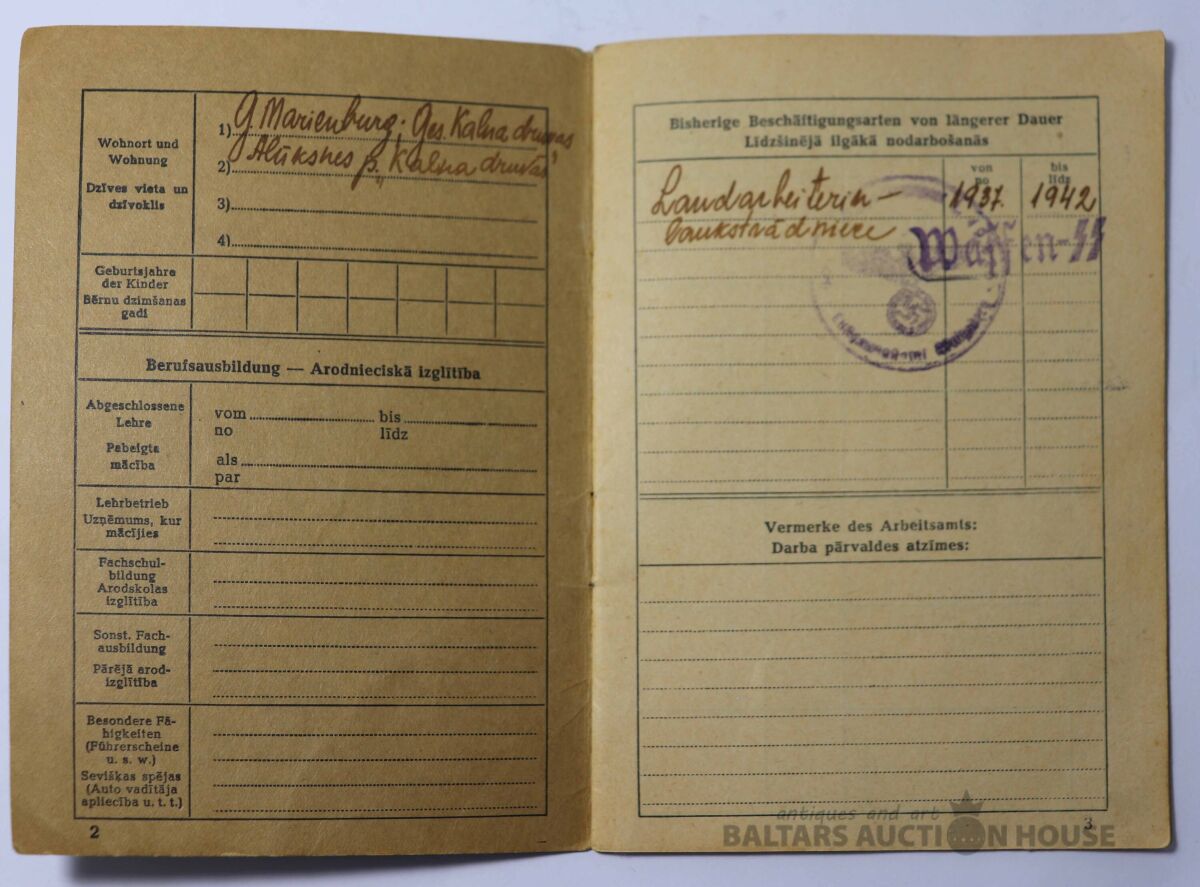 Wohnort und
Wohnung
Dzīves vieta un
dzīvoklis
1) G Marienburg; Ges. Kalna druvas
2) Alūksnes p. „Kalna druvas”
3)
4)
Geburtsjahre
der Kinder
Bērnu dzimšanas
gadi
Berufsausbildung — Arodnieciskā izglītība
Abgeschlossene
Lehre
Pabeigta
mācība
vom bis
no līdz
als
par
Lehrbetrieb
Uzņēmums, kur
mācījies
Fachschul-
bildung
Arodskolas
izglītība
Sonst. Fach-
ausbildung
Pārējā arod-
izglītība
Besondere Fä-
higkeiten
(Führerscheine
u. s. w.)
Sevišķas spējas
(Auto vadītāja
apliecība u. t. t.)
2
Bisherige Beschäftigungsarten von längerer Dauer
Līdzšinējā ilgākā nodarbošanās
von bis
no līdz
Landarbeiterin — 1937. 1942
Laukstrādniece
Waffen SS
Vermerke des Arbeitsamts:
Darba pārvaldes atzīmes:
3
antiques and art
BALTARS AUCTION HOUSE